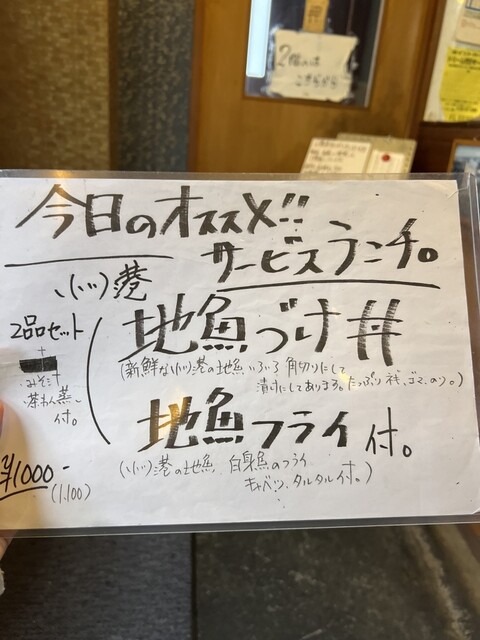 2階へは
こちらから
今日のオススメ!!
サービスランチ。
小川港
2品セット
地魚づけ丼
(新鮮な小川港の地魚 いろいろ角切りにして
漬けにしてあります。たっぷりネギ、ゴマ、のり。)
+
みそ汁
茶わん蒸し
付。
地魚フライ付。
(小川港の地魚 白身魚のフライ
キャベツ、タルタル付。)
¥1000-
(1.100)